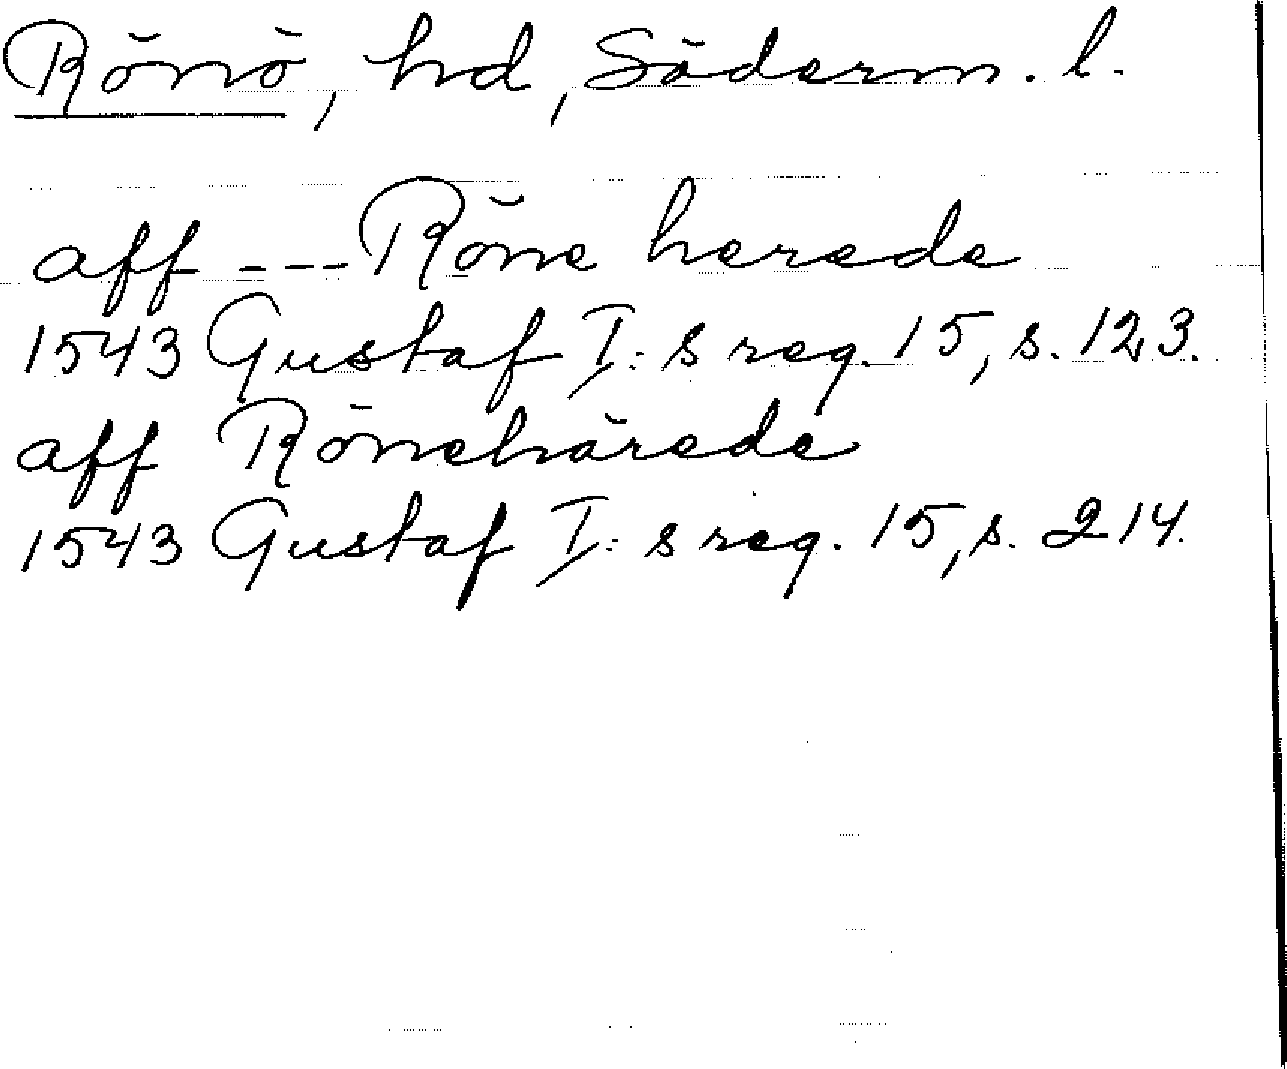 Rönö, hd, Söderm. l.
aff --- Röne herede
1543 Gustaf I:s reg. 15, s. 123.
aff Rönehärede
1543 Gustaf I:s reg. 15, s. 214.